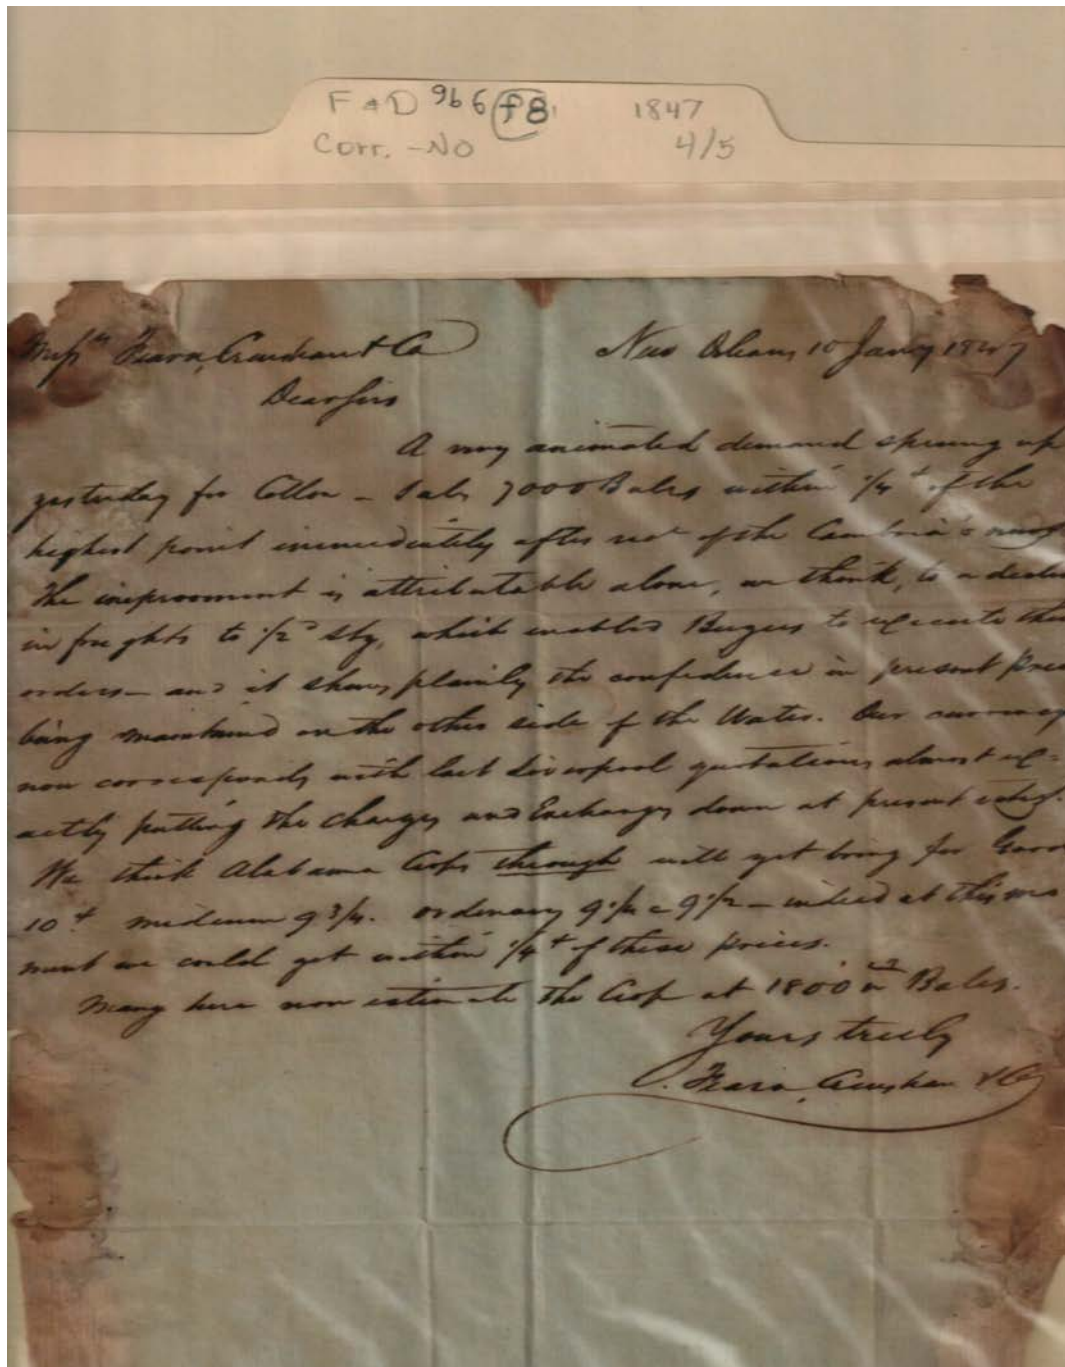 F & D 966 f8 1847
Corr. - NO 4/5
Messrs Fearn, Crenshaw & Co New Orleans 10 Jany 1847
Dear Sirs
A very animated demand sprung up
yesterday for Cotton - Sales 7000 Bales within 1/4 of the
highest point immediately after of the Cambria's
The improvement is attributable alone, we think, to a
in freights to 1/2 Stg, which enabled Buyers to execute their
orders - and it shows plainly the confidence in present
being maintained on the other side of the Water. Our currency
now corresponds with last Liverpool quotations almost ex=
actly putting the charges and Exchanges down at present
We think Alabama Crops through will yet bring for Good
10 midium 9 3/4. ordinary 9 1/4 a 9 1/2 - indeed at this mo
ment we could get within 1/4 of these prices.
Many here now estimate the Crop at 1800 Bales.
Yours truly
Fearn, Crenshaw & Co